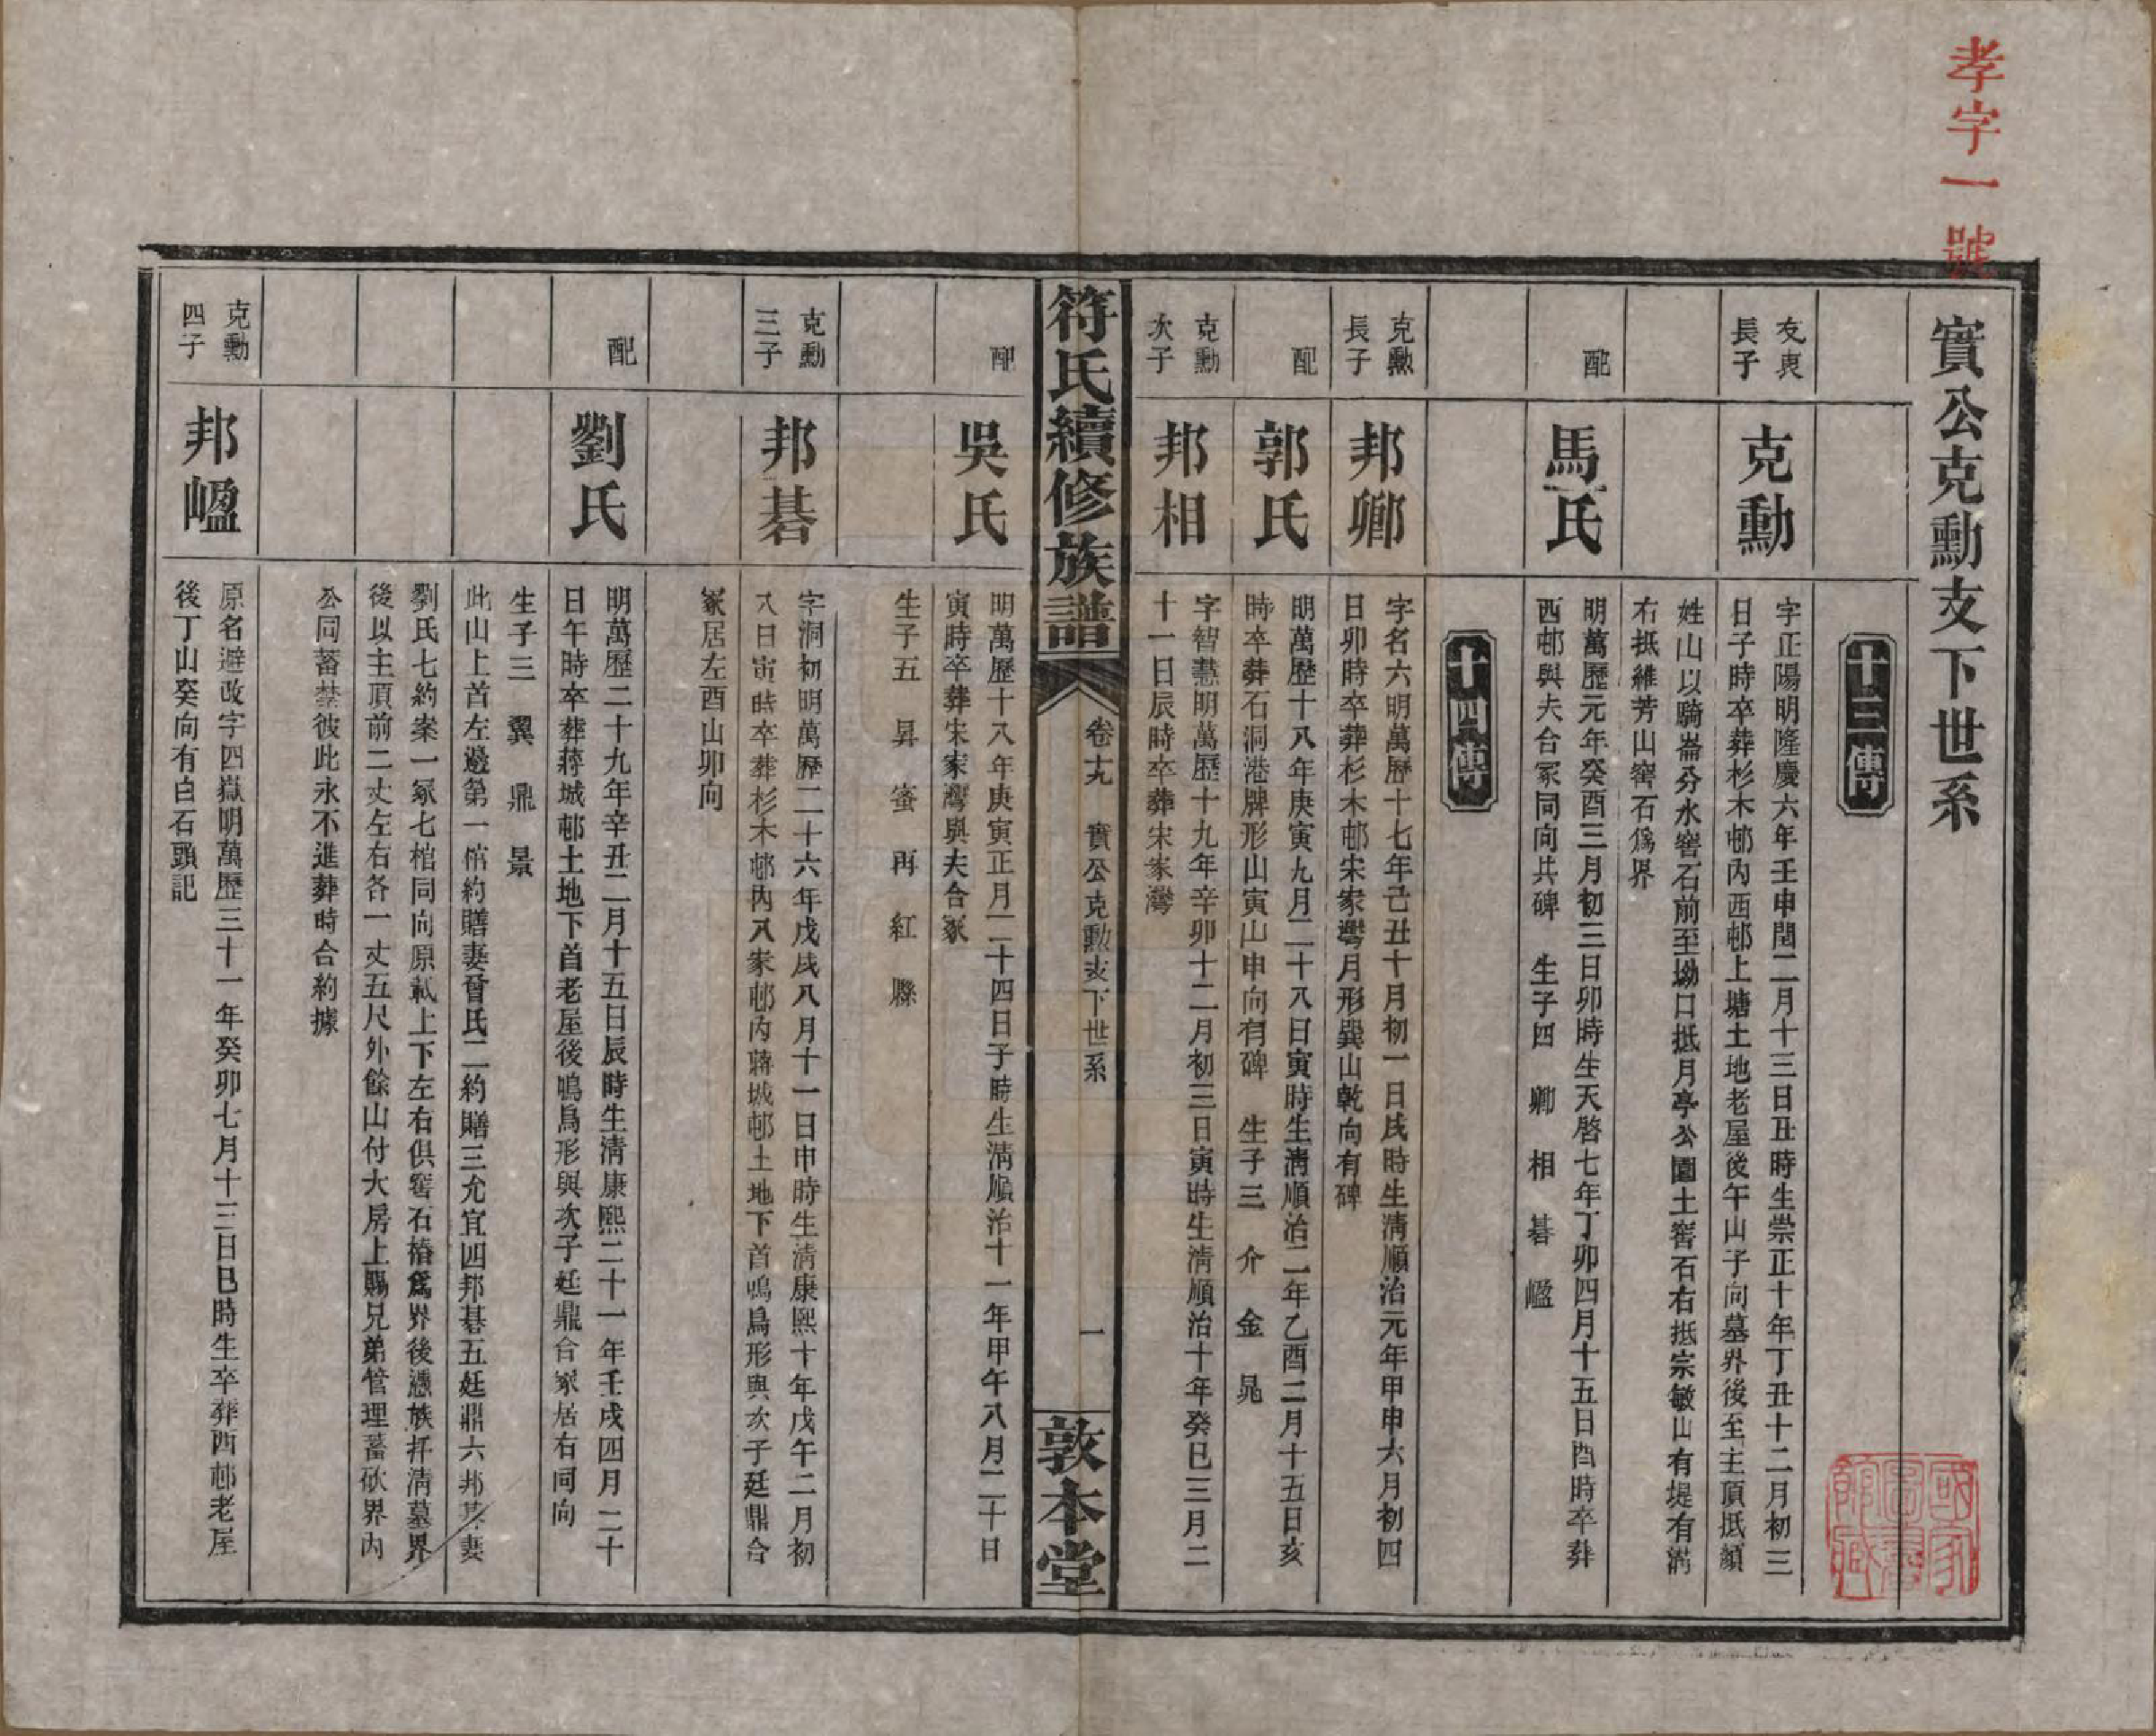 孝字一號
實公克勳支下世系
十三傳
友輿長子
克勳
字正陽明隆慶六年壬申閏二月十三日丑時生崇正十年丁丑十二月初三
日子時卒葬杉木邨內西邨上塘土地老屋後午山子向墓界後至主頂抵顏
姓山以騎崙分水窖石前至坳口抵月亭公園土窖石右抵宗敏山有堤有溝
右抵維芳山窖石爲界
配
馬氏
明萬歷元年癸酉三月初三日卯時生天啓七年丁卯四月十五日酉時卒葬
西邨與夫合冢同向共碑 生子四 卿 相 碁 崐
十四傳
克勳長子
邦卿
字名六明萬歷十七年己丑十月初一日戌時生清順治元年甲申六月初四
日卯時卒葬杉木邨宋家灣月形巽山乾向有碑
配
郭氏
明萬歷十八年庚寅九月二十八日寅時生清順治二年乙酉二月十五日亥
時卒葬石洞港牌形山寅山申向有碑 生子三 介 金 晁
克勳次子
邦相
字智慧明萬歷十九年辛卯十二月初三日寅時生清順治十年癸巳三月二
十一日辰時卒葬宋家灣
符氏續修族譜
卷十九 實公克勳支下世系
一
敦本堂
配
吳氏
明萬歷十八年庚寅正月二十四日子時生清順治十一年甲午八月二十日
寅時卒葬宋家灣與夫合冢
生子五 昇 蜜 再 紅 縣
克勳三子
邦碁
字洞初明萬歷二十六年戊戌八月十一日申時生清康熙十年戊午二月初
八日寅時卒葬杉木邨內八家邨內蔣城邨土地下首鳴鳥形與次子廷鼎合
冢居左酉山卯向
配
劉氏
明萬歷二十九年辛丑二月十五日辰時生清康熙二十一年壬戌四月二十
日午時卒葬蔣城邨土地下首老屋後鳴鳥形與次子廷鼎合冢居右同向
生子三 翼 鼎 景
此山上首左邊第一棺約贍妻曾氏二約贍三允宜四邦碁五廷鼎六邦碁妻
劉氏七約案一冢七棺同向原載上下左右俱窖石樁爲界後憑族扦清墓界
後以主頂前二丈左右各一丈五尺外餘山付大房上賜兄弟管理蓄砍界內
公同蓄禁彼此永不進葬時合約據
克勳四子
邦崐
原名避改字四嶽明萬歷三十一年癸卯七月十三日巳時生卒葬西邨老屋
後丁山癸向有白石頭記
國家圖書館藏